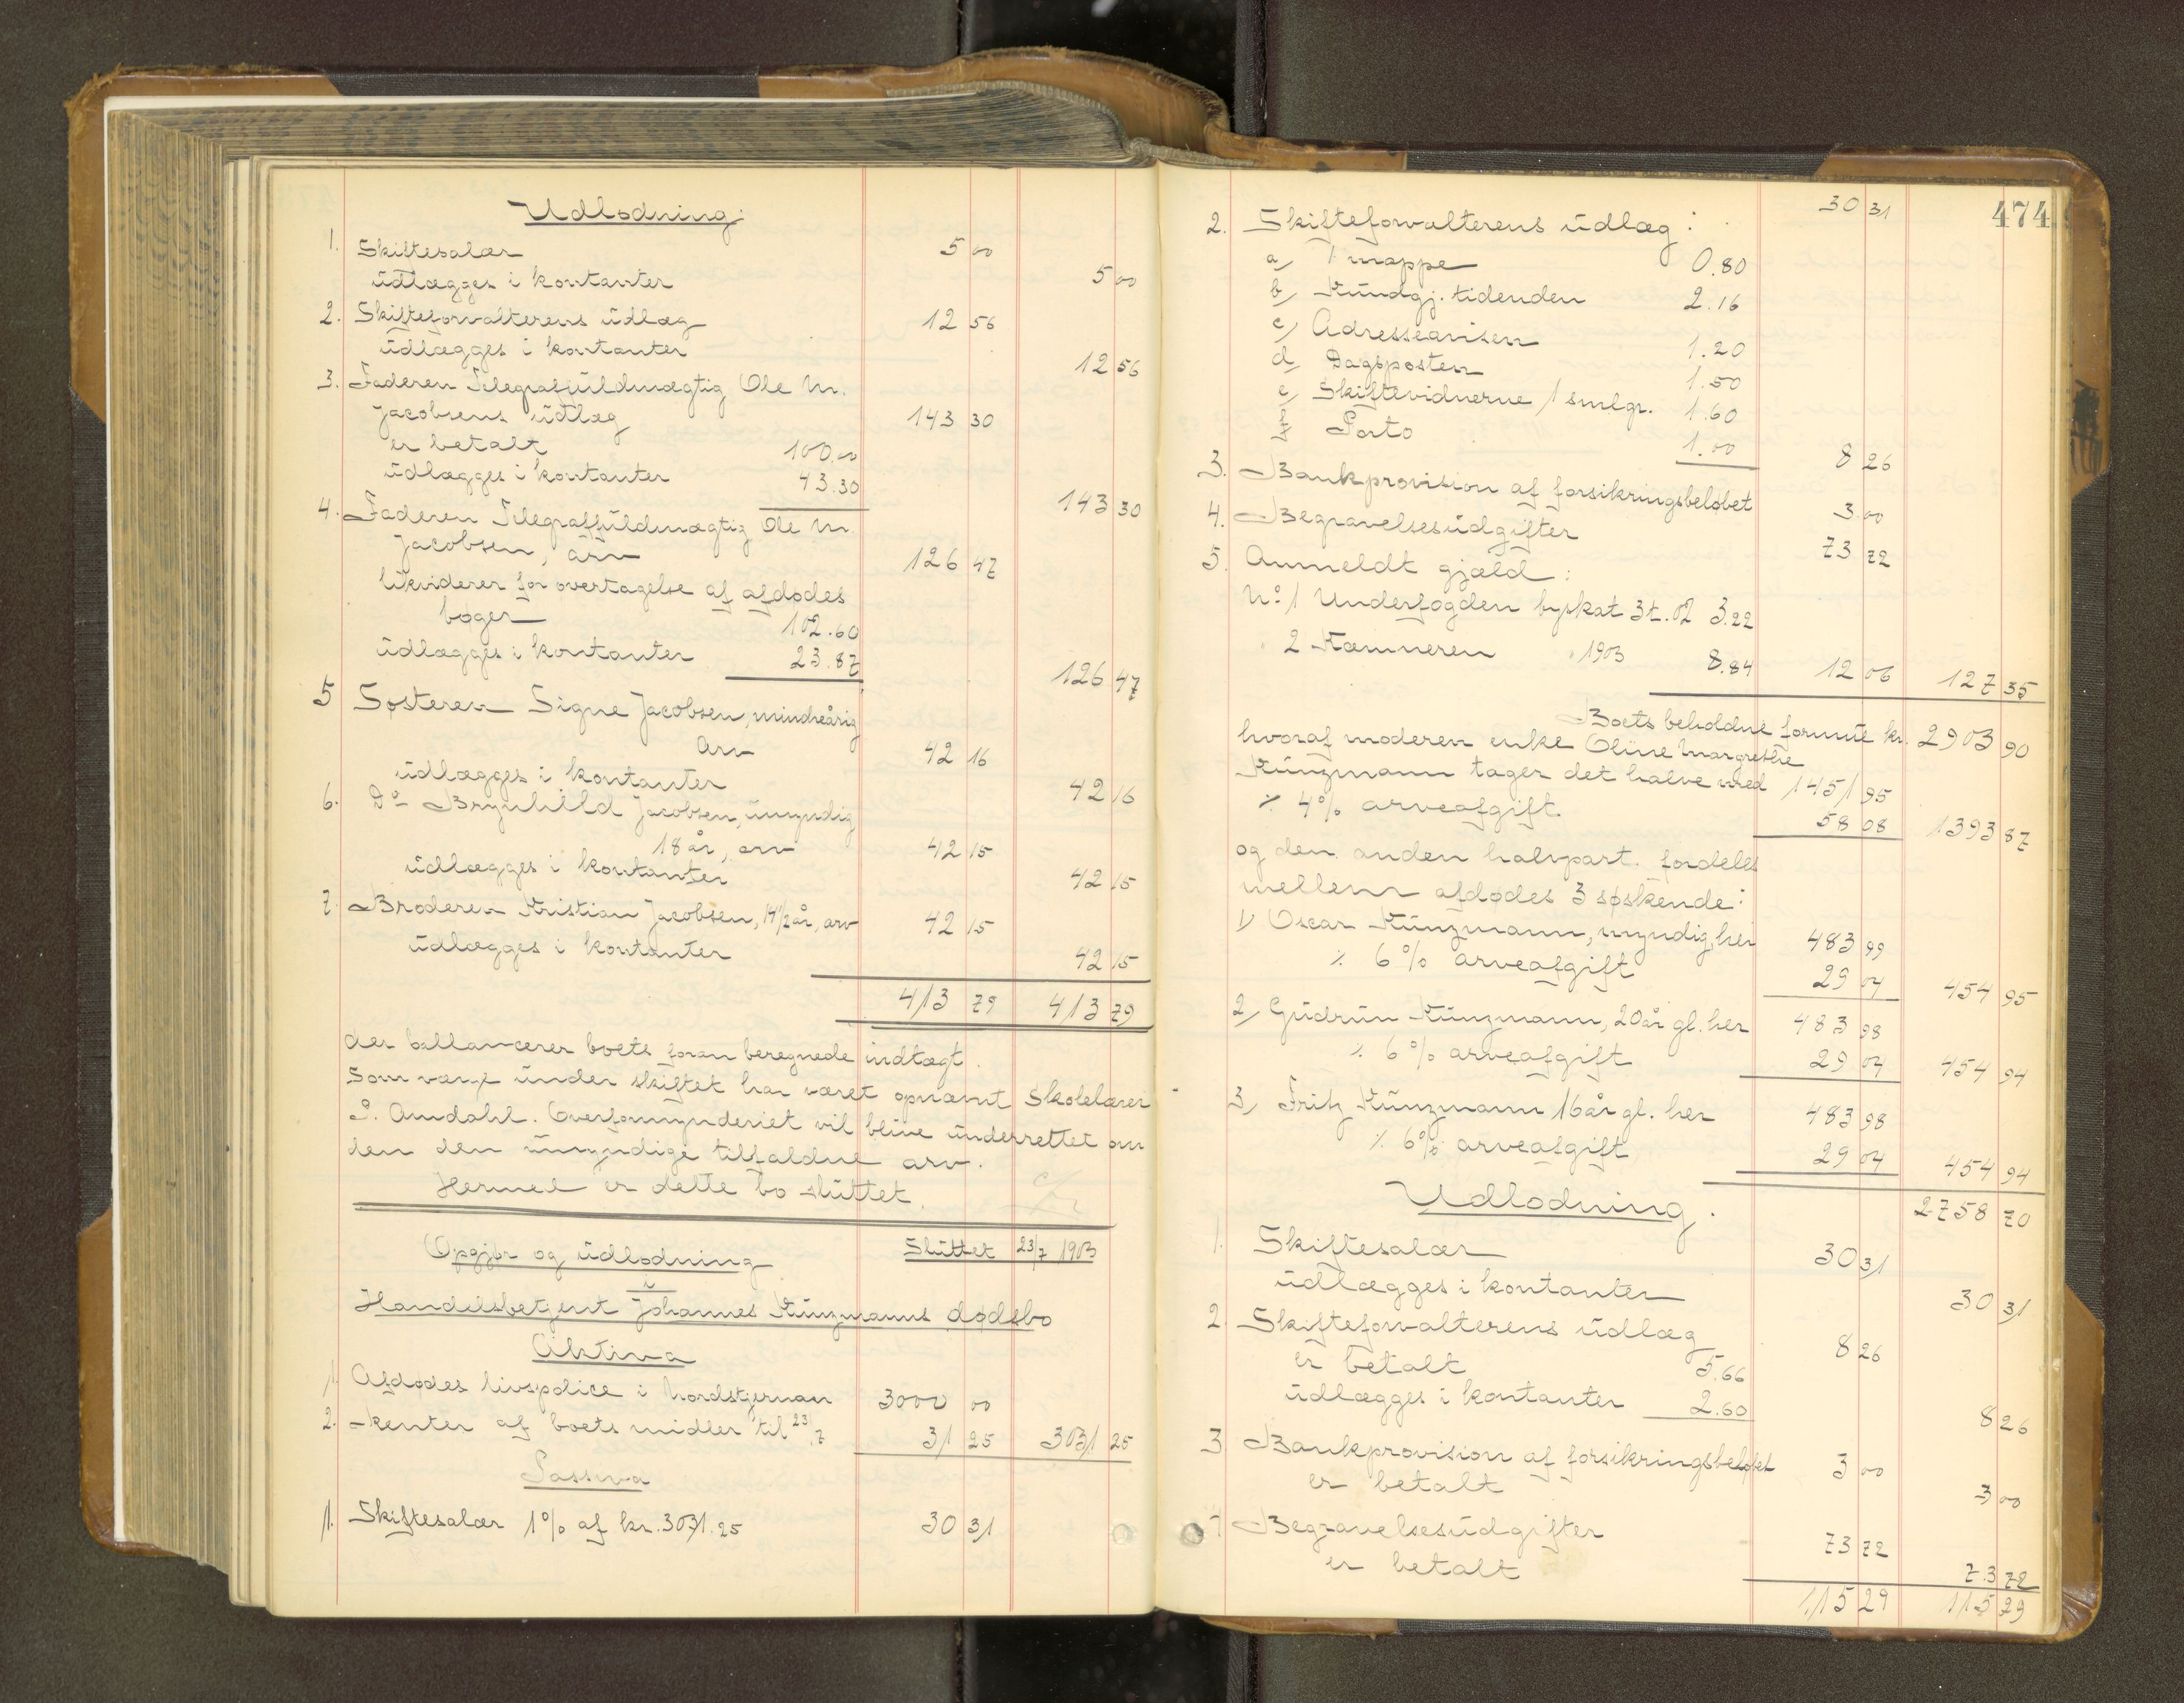 Udlodning:
1. Skiftesalær 5 00
udlægges i kontanter 5 00
2. Skifteforvalterens udlæg 12 56
udlægges i kontanter 12 56
3. Faderen Telegraffuldmægtig Ole M.
Jacobsens udlæg 143 30
er betalt 100.00
udlægges i kontanter 43.30
143 30
4. Faderen Telegraffuldmægtig Ole M.
Jacobsen, arv 126 47
likviderer for overtagelse af afdødes
bøger 102.60
udlægges i kontanter 23.87
126 47
5 Søsteren Signe Jacobsen, mindreårig
arv 42 16
udlægges i kontanter 42 16
6. Do Brynhild Jacobsen, umyndig
18 år, arv 42 15
udlægges i kontanter 42 15
7. Broderen Kristian Jacobsen, 14 1/2 år, arv 42 15
udlægges i kontanter 42 15
413 79 413 79
der ballancerer boets foran beregnede indtægt.
Som værge under skiftet har været opnævnt Skolelærer
P. Amdahl. Overformynderiet vil blive underrettet om
den den umyndige tilfaldne arv.
Hermed er dette bo sluttet.
Opgjør og udlodning Sluttet 23/7 1903
i
Handelsbetjent Johannes Künzmanns dødsbo
Aktiva
1. Afdødes livspolice i Nordstjernan 3000 00
2. Renter af boets midler til 23/7 31 25 3031 25
Passiva
1. Skiftesalær 1% af kr. 3031.25 30 31
474
30 31
2. Skifteforvalterens udlæg:
a/ 1 mappe 0.80
b/ Kundgj. tidenden 2.16
c/ Adresseavisen 1.20
d/ Dagsposten 1.50
e/ Skiftevidnerne 1 smlgr. 1.60
f/ Porto 1.00 8 26
3. Bankprovision af forsikringsbeløbet 3 00
4. Begravelsesudgifter 73 72
5. Anmeldt gjæld:
No 1 Underfogden byskat 3 t. 02 3.22
" 2 Kæmneren " 1903 8.84 12 06 127 35
Boets beholdne formue kr. 2903 90
hvoraf moderen enke Oline Margrethe
Künzmann tager det halve med 1451 95
% 4% arveafgift 58 08 1393 87
og den anden halvpart fordeles
mellem afdødes 3 søskende:
1/ Oscar Künzmann, myndig, her 483 99
% 6% arveafgift 29 04 454 95
2/ Gudrun Künzmann, 20 år gl. her 483 98
% 6% arveafgift 29 04 454 94
3/ Fritz Künzmann 16 år gl. her 483 98
% 6% arveafgift 29 04 454 94
2758 70
Udlodning.
1. Skiftesalær 30 31
udlægges i kontanter 30 31
2. Skifteforvalterens udlæg 8 26
er betalt 5.66
udlægges i kontanter 2.60
8 26
3 Bankprovision af forsikringsbeløbet 3 00
er betalt 3 00
4 Begravelsesudgifter 73 72
er betalt 73 72
115 29 115 29